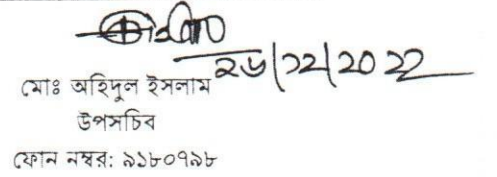 ২৬/১২/২০২২
মোঃ অহিদুল ইসলাম
উপসচিব
ফোন নম্বর: ৯১৮০৭৯৮